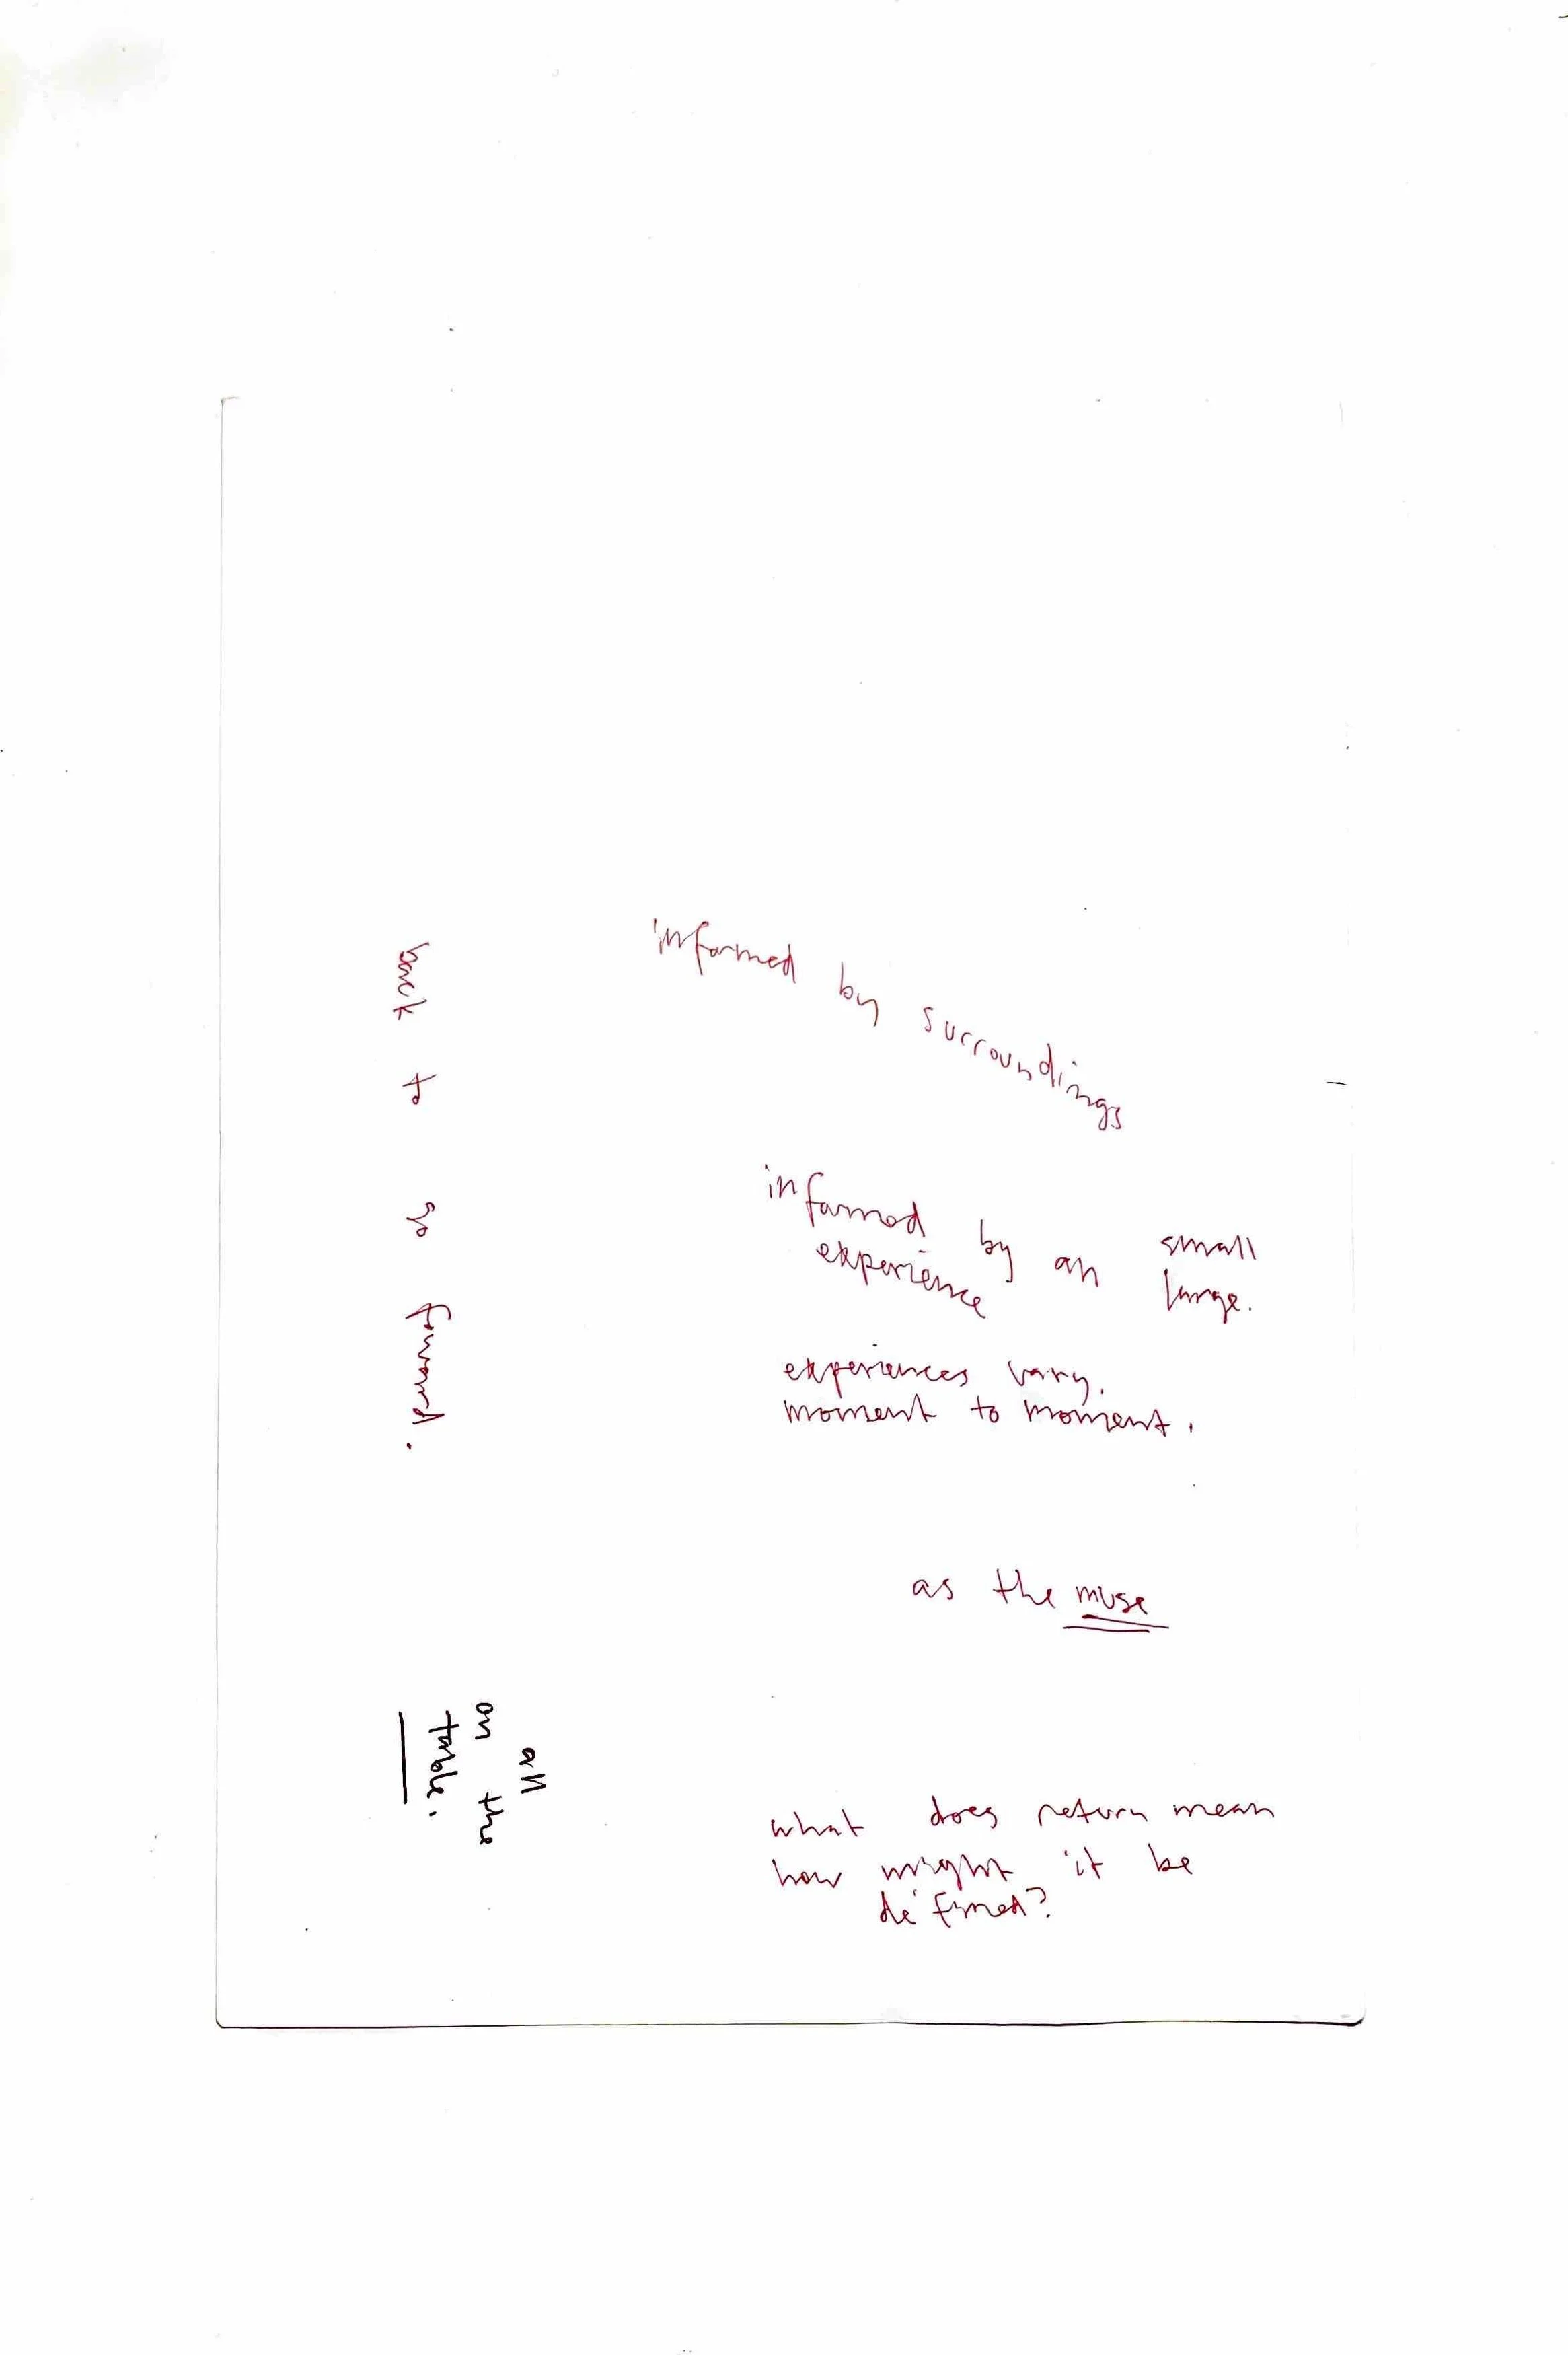 informed by surroundings
informed by an small
experience large.
experiences vary.
moment to moment.
as the muse
what does return mean
how might it be
defined?
back to go forward.
all
on the
table.